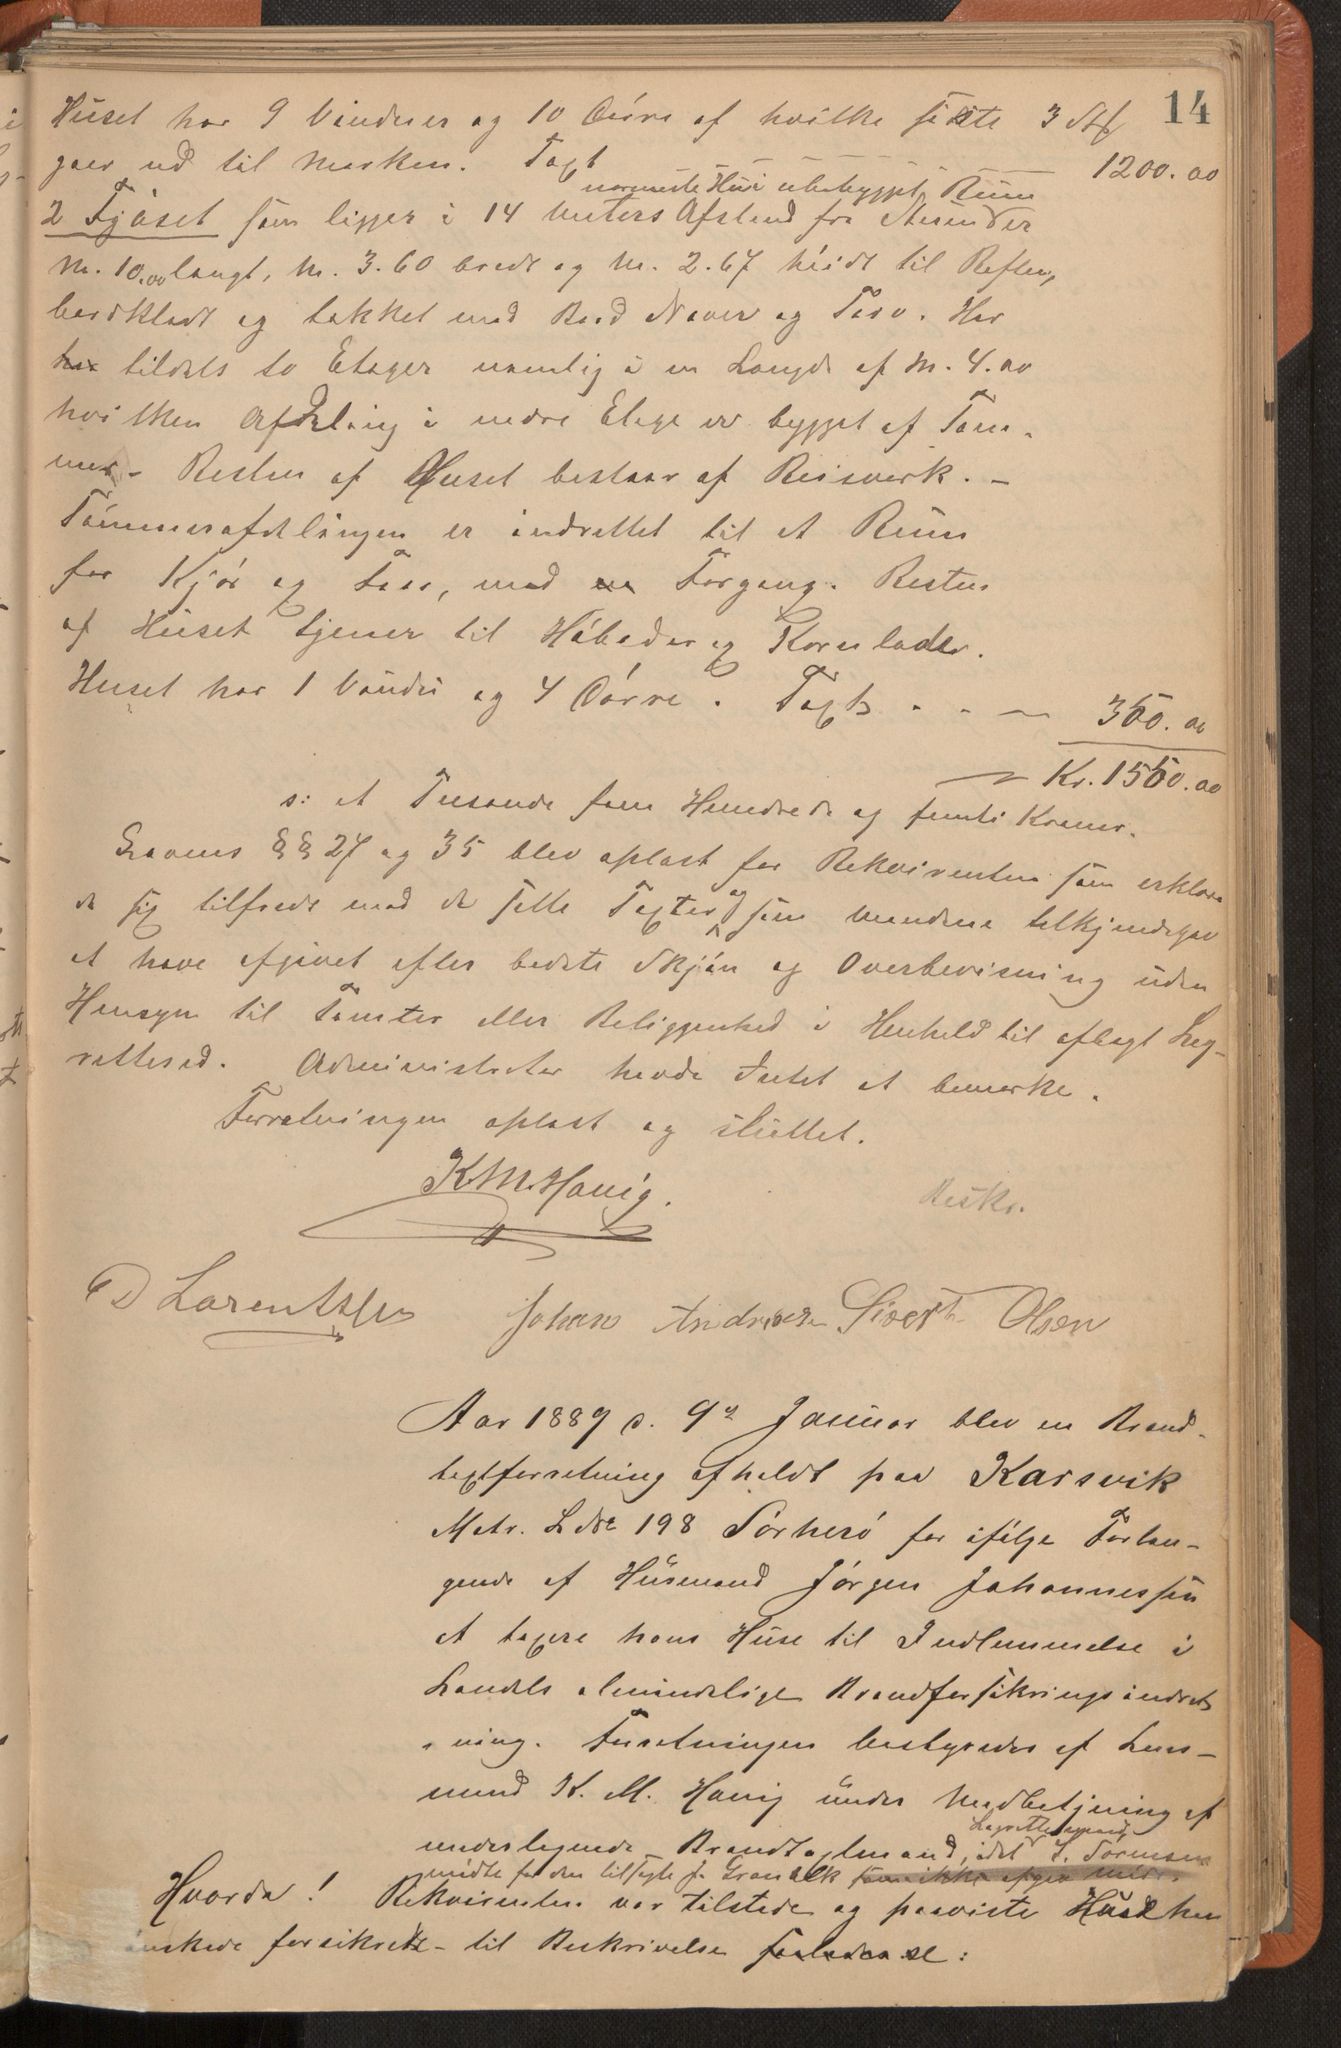 14
Huset har 9 Vinduer og 10 Dörre af hvilke sidste 3 Stk
gaar ud til Marken. Taxt 1200.00
nærmeste Hus ubebygget Rum
2 Fjöset som ligger i 14 Meters Afstand fra er
M. 10.00 langt, M. 3.60 bredt og M. 2.67 höidt til Raften,
bordklædt og tækket med Bord Næver og Törv. Har
har tildels to Etager nemlig i en Længde af M. 4.00
hvilken Afdeling i nedre Etage er bygget af Töm-
mer - Resten af Huset bestaar af Reisverk. -
Tömmerafdelingen er indrettet til et Rum
for Kjör og Faar, med en Forgang. Resten
af Huset tjener til Höbeder og Kornlader.
Huset har 1 Vindu og 4 Dörre. Taxt . . — 350.00
Kr. 1550.00
s: et Tusende fem Hundrede og femti Kroner.
Lovens §§ 27 og 35 blev oplæst for Rekvirenten som erklære
de sig tilfreds med de satte Taxter og som Mændene tilkjendegav
at have afgivet efter bedste Skjön og Overbevisning uden
Hensyn til Tomter eller Beliggenhed i Henhold til aflagt Lag-
rettesed. Administrator havde Intet at bemærke.
Forretningen oplæst og sluttet.
K M Havig.
Beskr.
D Lorentzen Johan Andersen Sivert Olsen
Aar 1889 d. 9de Januar blev en Brand-
taxtforretning afholdt paa Karsvik
Matr. L No 198 Sörherö for ifölge Forlan-
gende af Husmand Jörgen Johannessen
at taxere hans Huse til Indlemmelse i
Landets almindelige Brandforsikringsindret-
ning. Forretningen bestyredes af Lens-
mand K. M. Havig under Medbetjening af
Lagrettesmand
undertegnede Brandtaxtmænd, idet S. Sörensen
mödte for den tilsagte J. Grønbek som ikke
Hvorda! Rekvirenten var tilstede og paaviste Huset han
önskede forsikrede - til Beskrivelse saaledes: